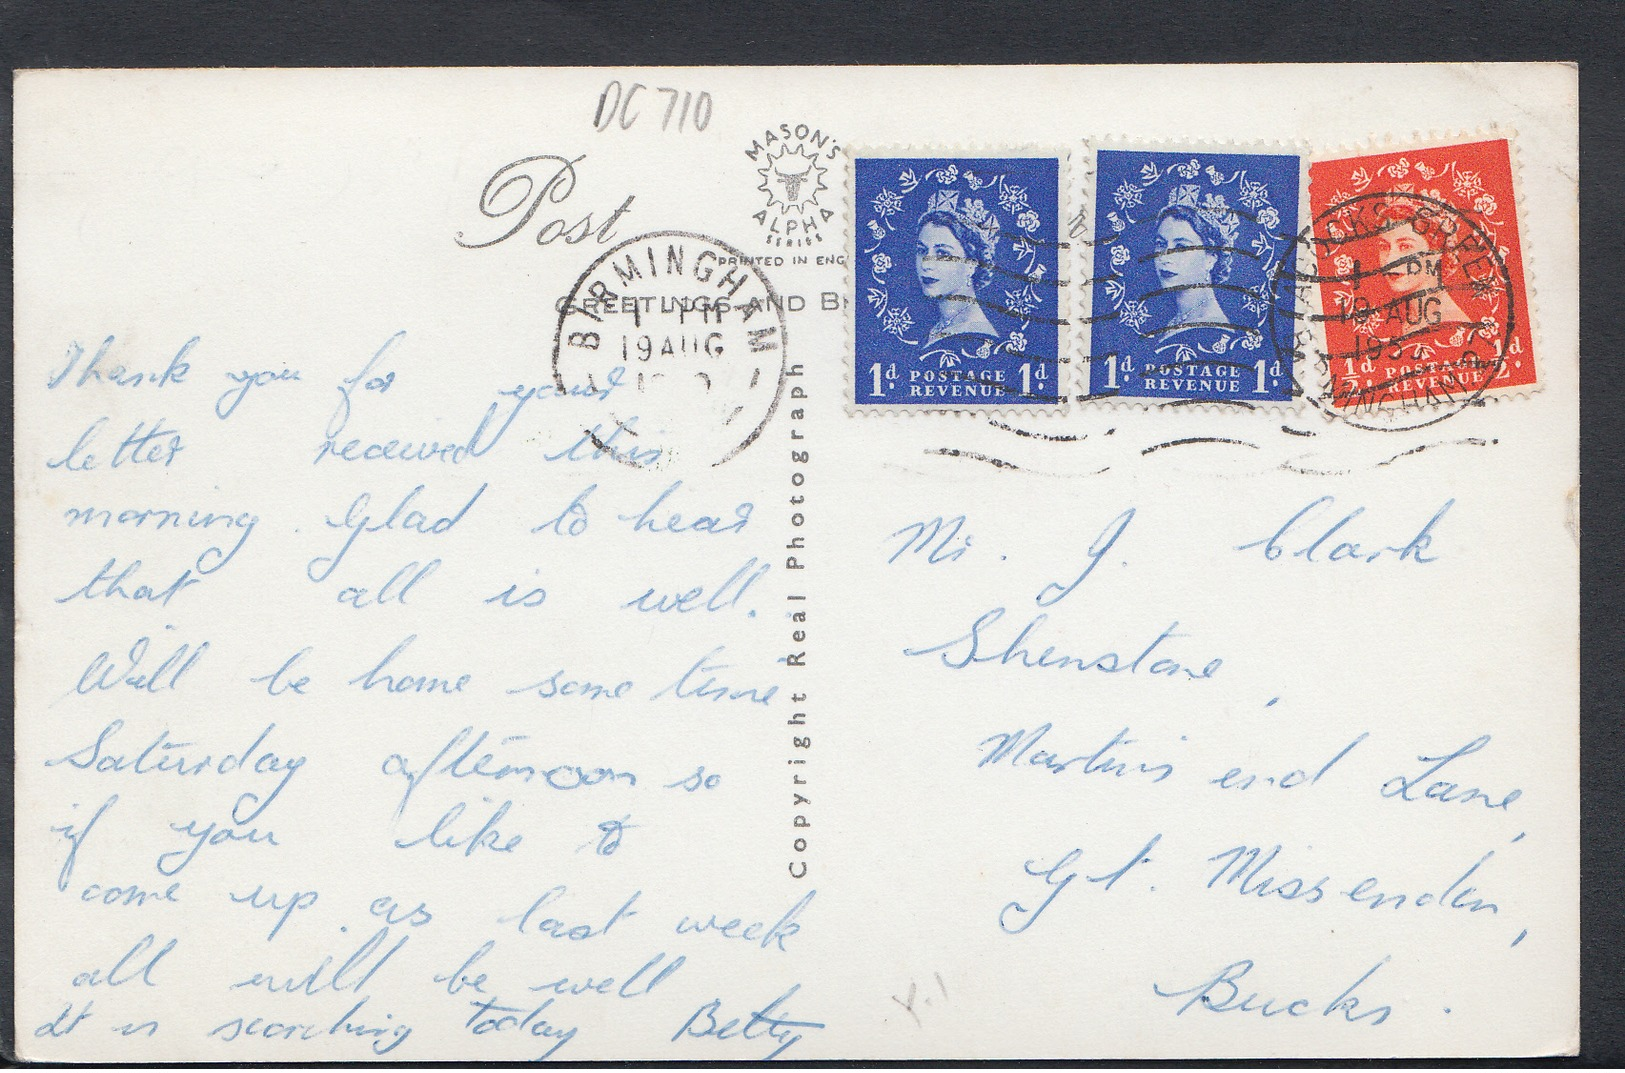 DC 710
Post
MASON'S
ALPHA
SERIES
PRINTED IN ENG
GREETINGS AND B
BIRMINGHAM
1 - PM
19 AUG
HADDOCKS GREEN
1 - PM
19 AUG
195
BIRMINGHAM
1d POSTAGE REVENUE 1d
1d POSTAGE REVENUE 1d
1/2d POSTAGE REVENUE 1/2d
Copyright Real Photograph
Thank you for your
letter received this
morning. Glad to hear
that all is well.
Will be home some time
Saturday afternoon so
if you like to
come up as last week
all will be well
It is scorching today Betty
Mr. J. Clark
Shenstone,
Martins end Lane,
Gt. Missenden,
Bucks.